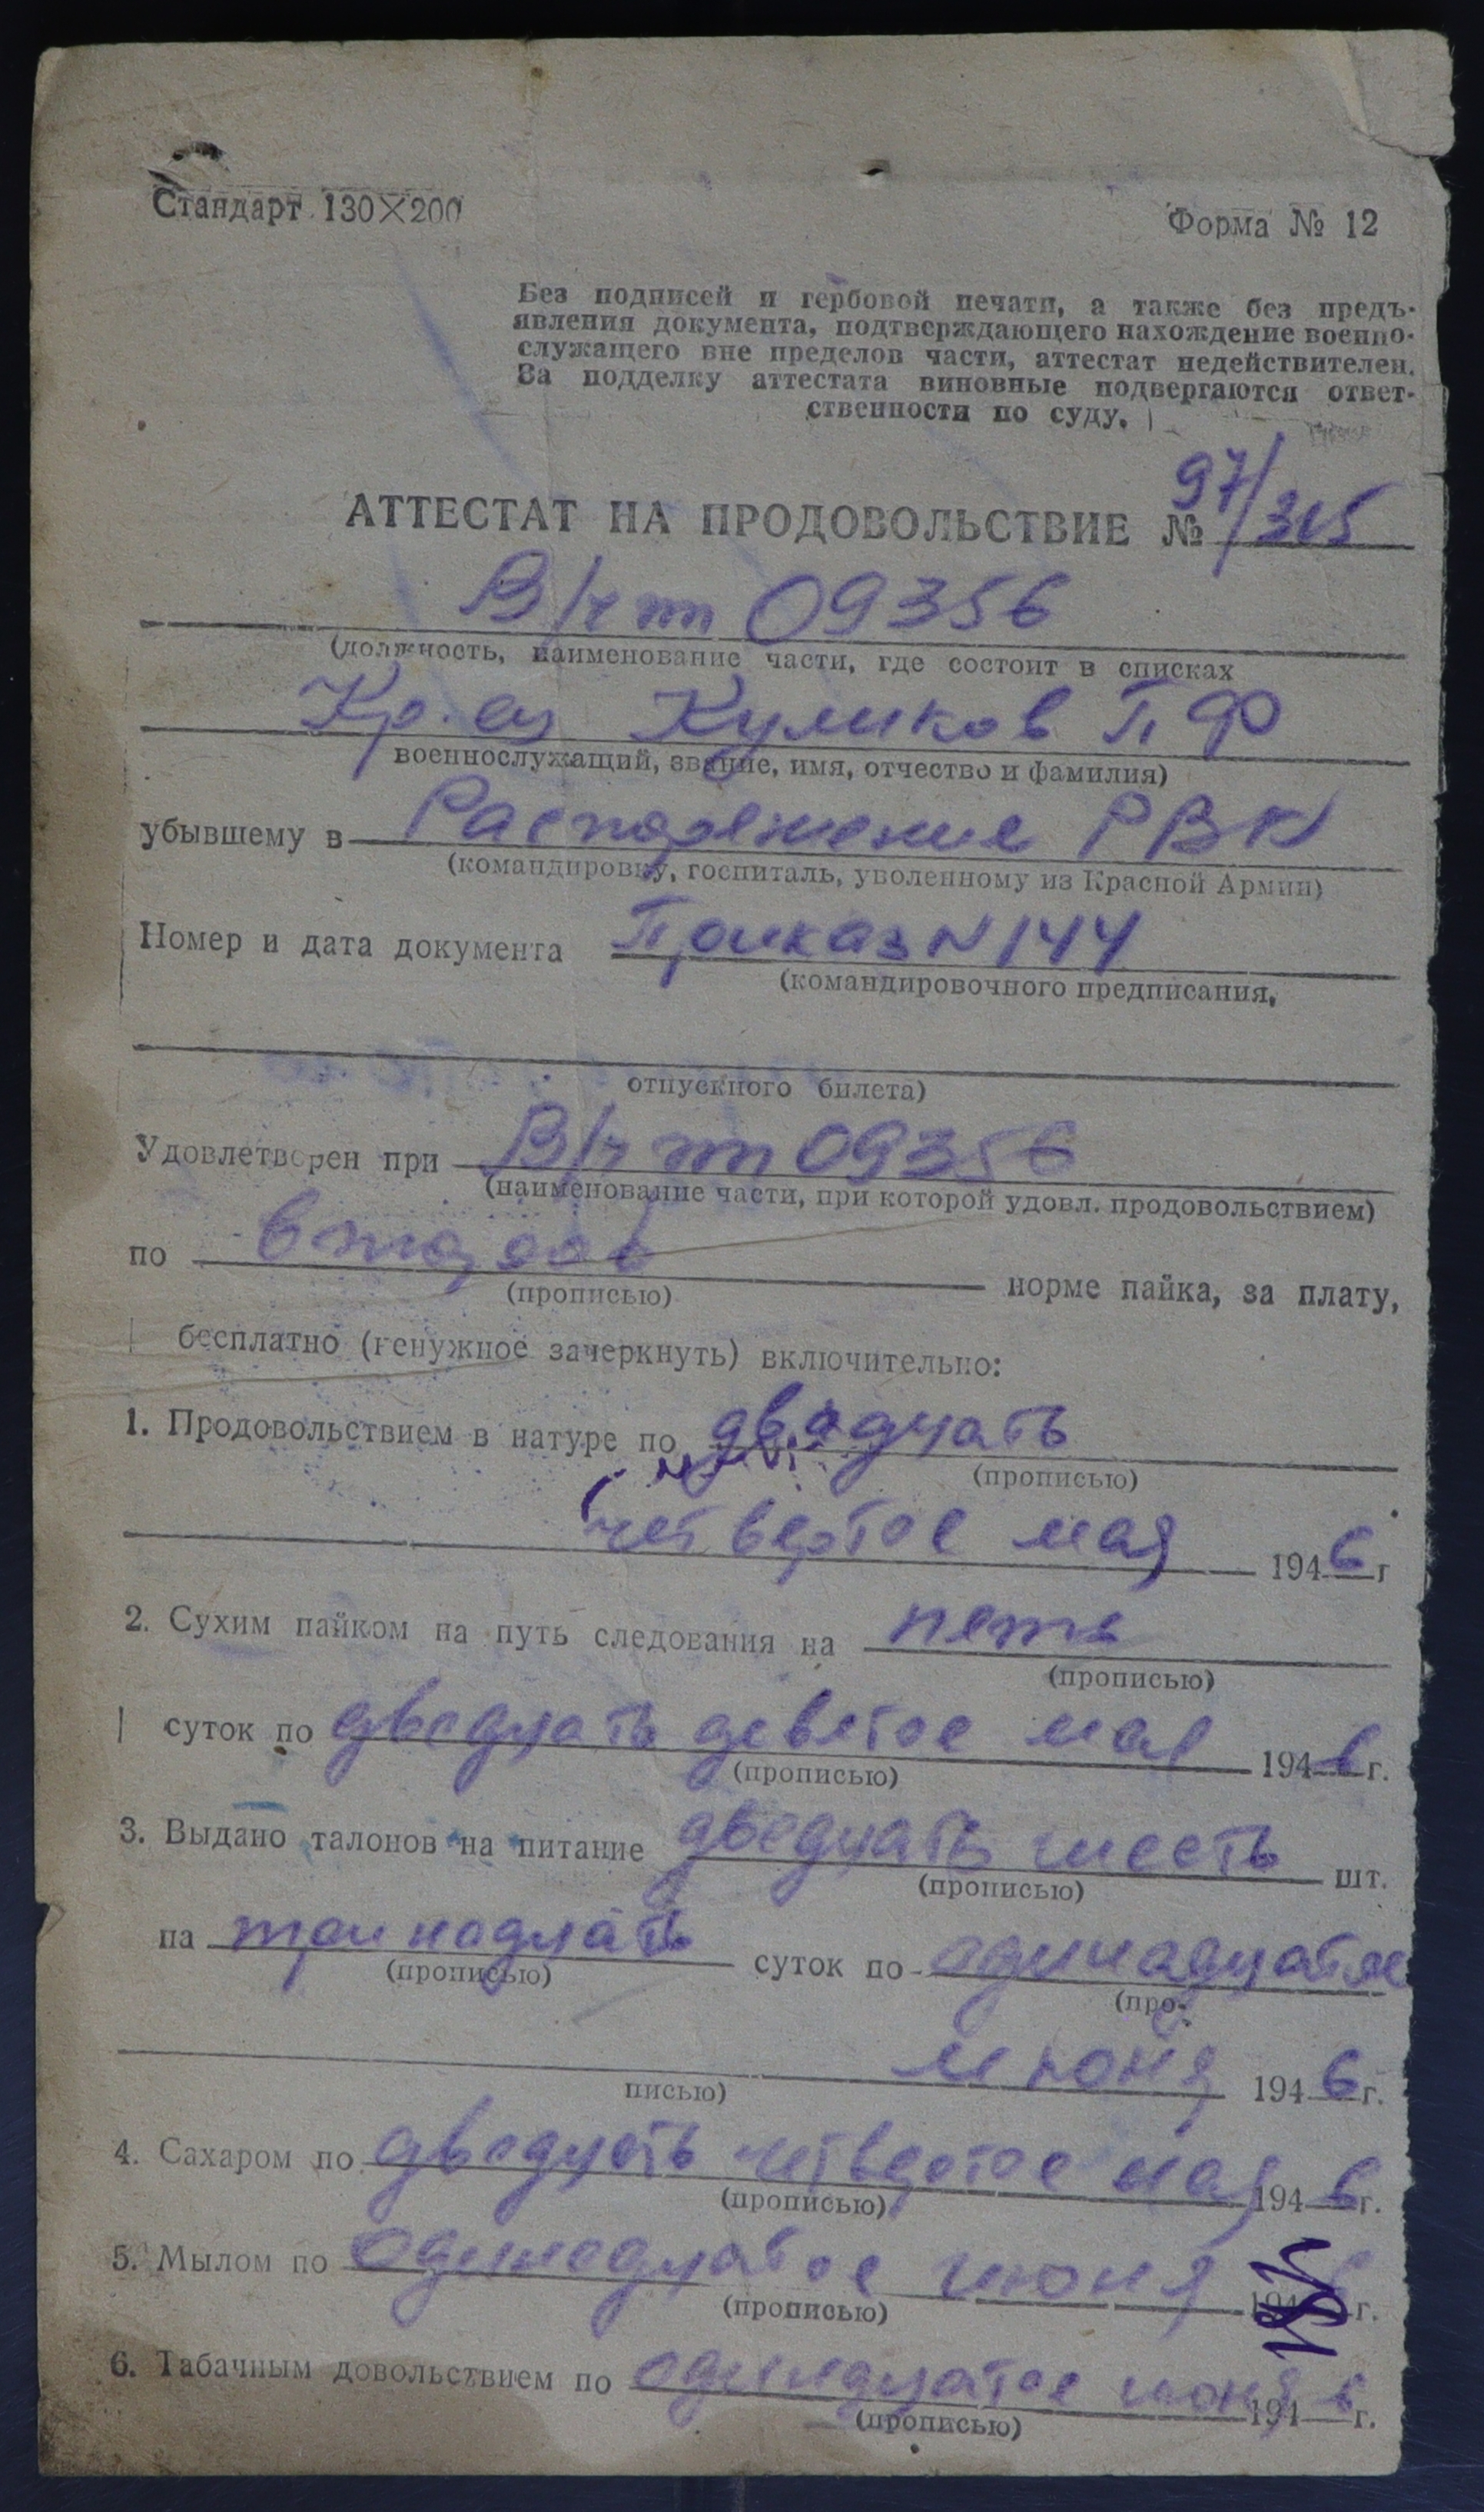 Стандарт 130×200
Форма № 12
Без подписей и гербовой печати, а также без предъ-
явления документа, подтверждающего нахождение военно-
служащего вне пределов части, аттестат недействителен.
За подделку аттестата виновные подвергаются ответ-
ственности по суду.
АТТЕСТАТ НА ПРОДОВОЛЬСТВИЕ № 97/315
В/ч пп 09356
(должность, наименование части, где состоит в списках
Кр-ец Куликов П Ф
военнослужащий, звание, имя, отчество и фамилия)
убывшему в Распоряжение РВК
(командировку, госпиталь, уволенному из Красной Армии)
Номер и дата документа Приказ N 144
(командировочного предписания,
отпускного билета)
Удовлетворен при В/ч пп 09356
(наименование части, при которой удовл. продовольствием)
по норме пайка, за плату,
(прописью)
бесплатно (ненужное зачеркнуть) включительно:
1. Продовольствием в натуре по двадцать
(прописью)
четвертое мая 1946 г
2. Сухим пайком на путь следования на пять
(прописью)
суток по двадцать девятое мая 1946 г.
(прописью)
3. Выдано талонов на питание двадцать шесть шт.
(прописью)
на тринадцать суток по одинадцатое
(прописью) (про-
июня 1946 г.
писью)
4. Сахаром по двадцать четвертое мая 1946 г.
(прописью)
5. Мылом по одинадцатое июня 1946 г.
(прописью)
6. Табачным довольствием по одинадцатое июня 1946 г.
(прописью)